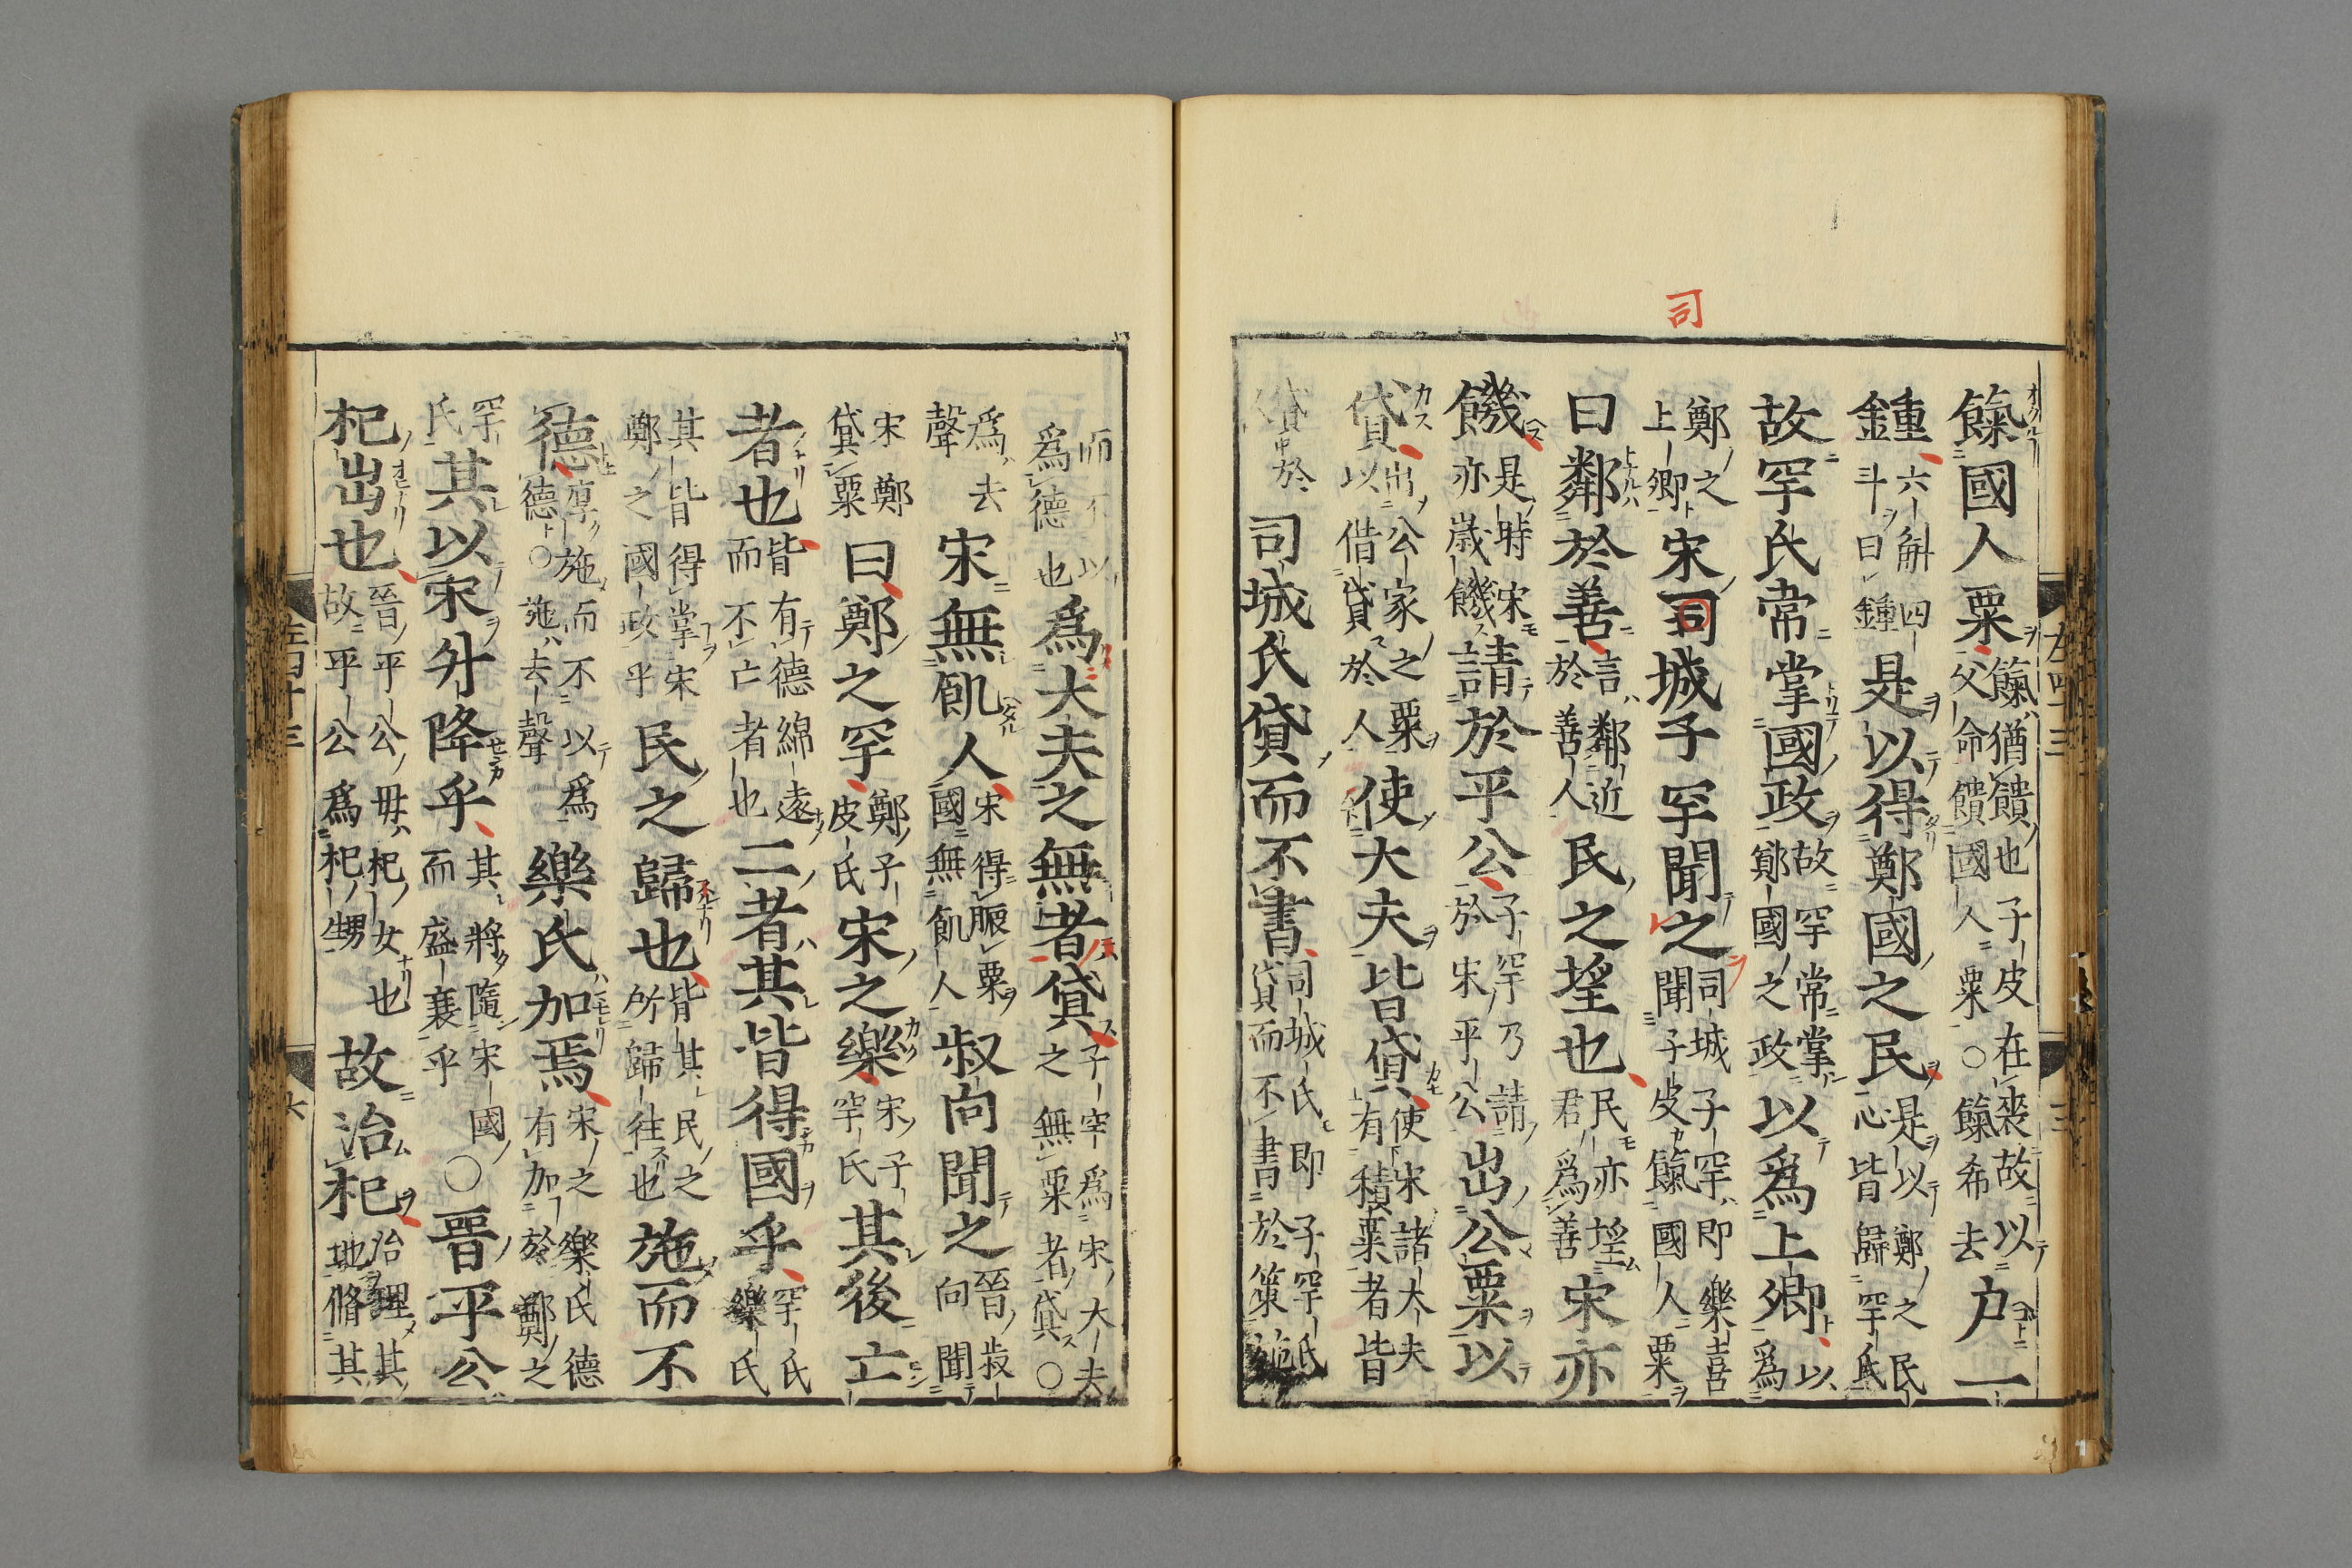 司
餼國人粟餼猶饋也子皮在喪故以父命饋國人粟○餼希去戶一
鍾六斛四斗曰鍾是以得鄭國之民是以鄭之民心皆歸罕氏
故罕氏常掌國政故罕常掌鄭國之政以爲上卿以爲
鄭之上卿宋司城子罕聞之司城子罕即樂喜聞子皮餼國人粟
曰鄰於善言鄰近於善人民之望也民亦望君爲善宋亦
饑是時宋亦歲饑請於平公子罕乃請於宋平公出公粟以
貸出公家之粟以借貸於人使大夫皆貸使宋諸大夫有積粟者皆
貸於司城氏貸而不書司城氏即子罕氏貸而不書於策施
而不以爲德也爲大夫之無者貸子罕爲宋大夫之無粟者貸○
爲去聲宋無飢人宋得賑粟國無飢人叔向聞之晉叔向聞
宋鄭貸粟曰鄭之罕鄭子皮氏宋之樂宋子罕氏其後亡
者也皆有德綿遠而不亡者也二者其皆得國乎罕氏樂氏
其皆得掌宋鄭之國政乎民之歸也皆其民之所歸往也施而不
德厚施而不以爲德○施去聲樂氏加焉宋之樂氏德有加於鄭之
罕氏其以宋升降乎其將隨宋國而盛衰乎○晉平公
杞出也晉平公母杞女也故平公爲杞甥故治杞治理其地脩其
左四十三
三
左四十三
六